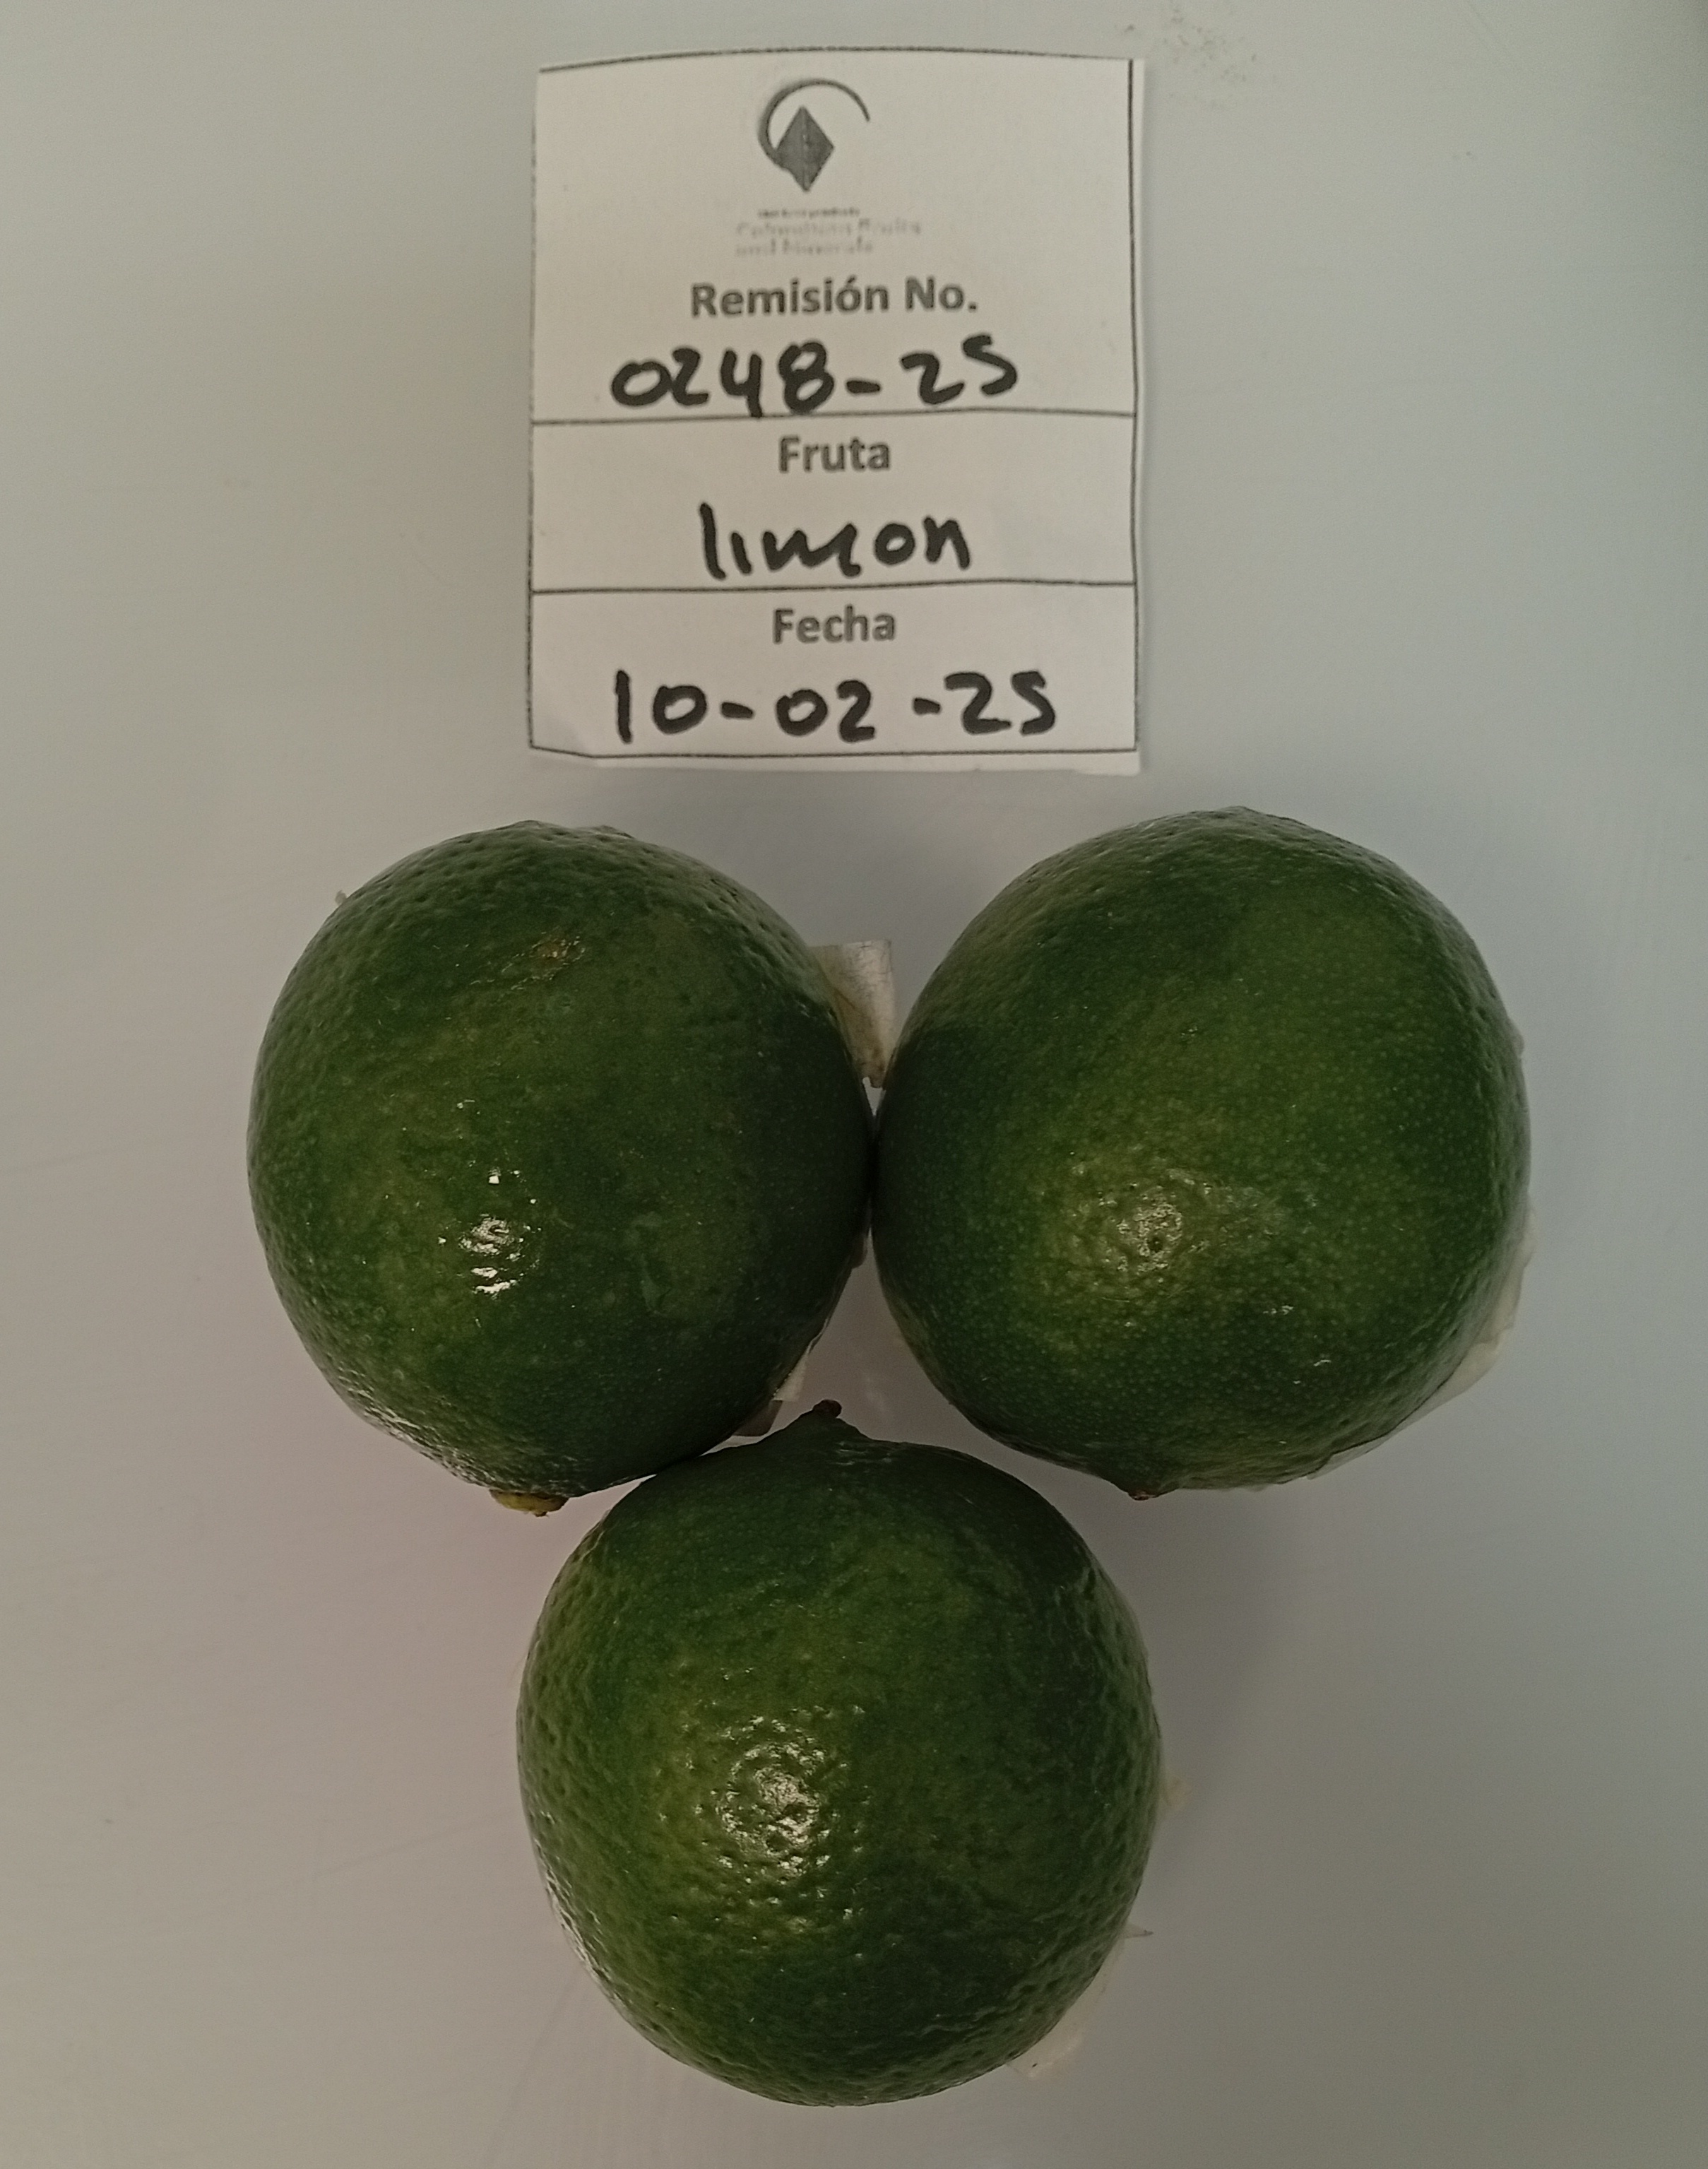 Colombian Fruits
and Minerals
Remisión No.
0248-25
Fruta
limon
Fecha
10-02-25